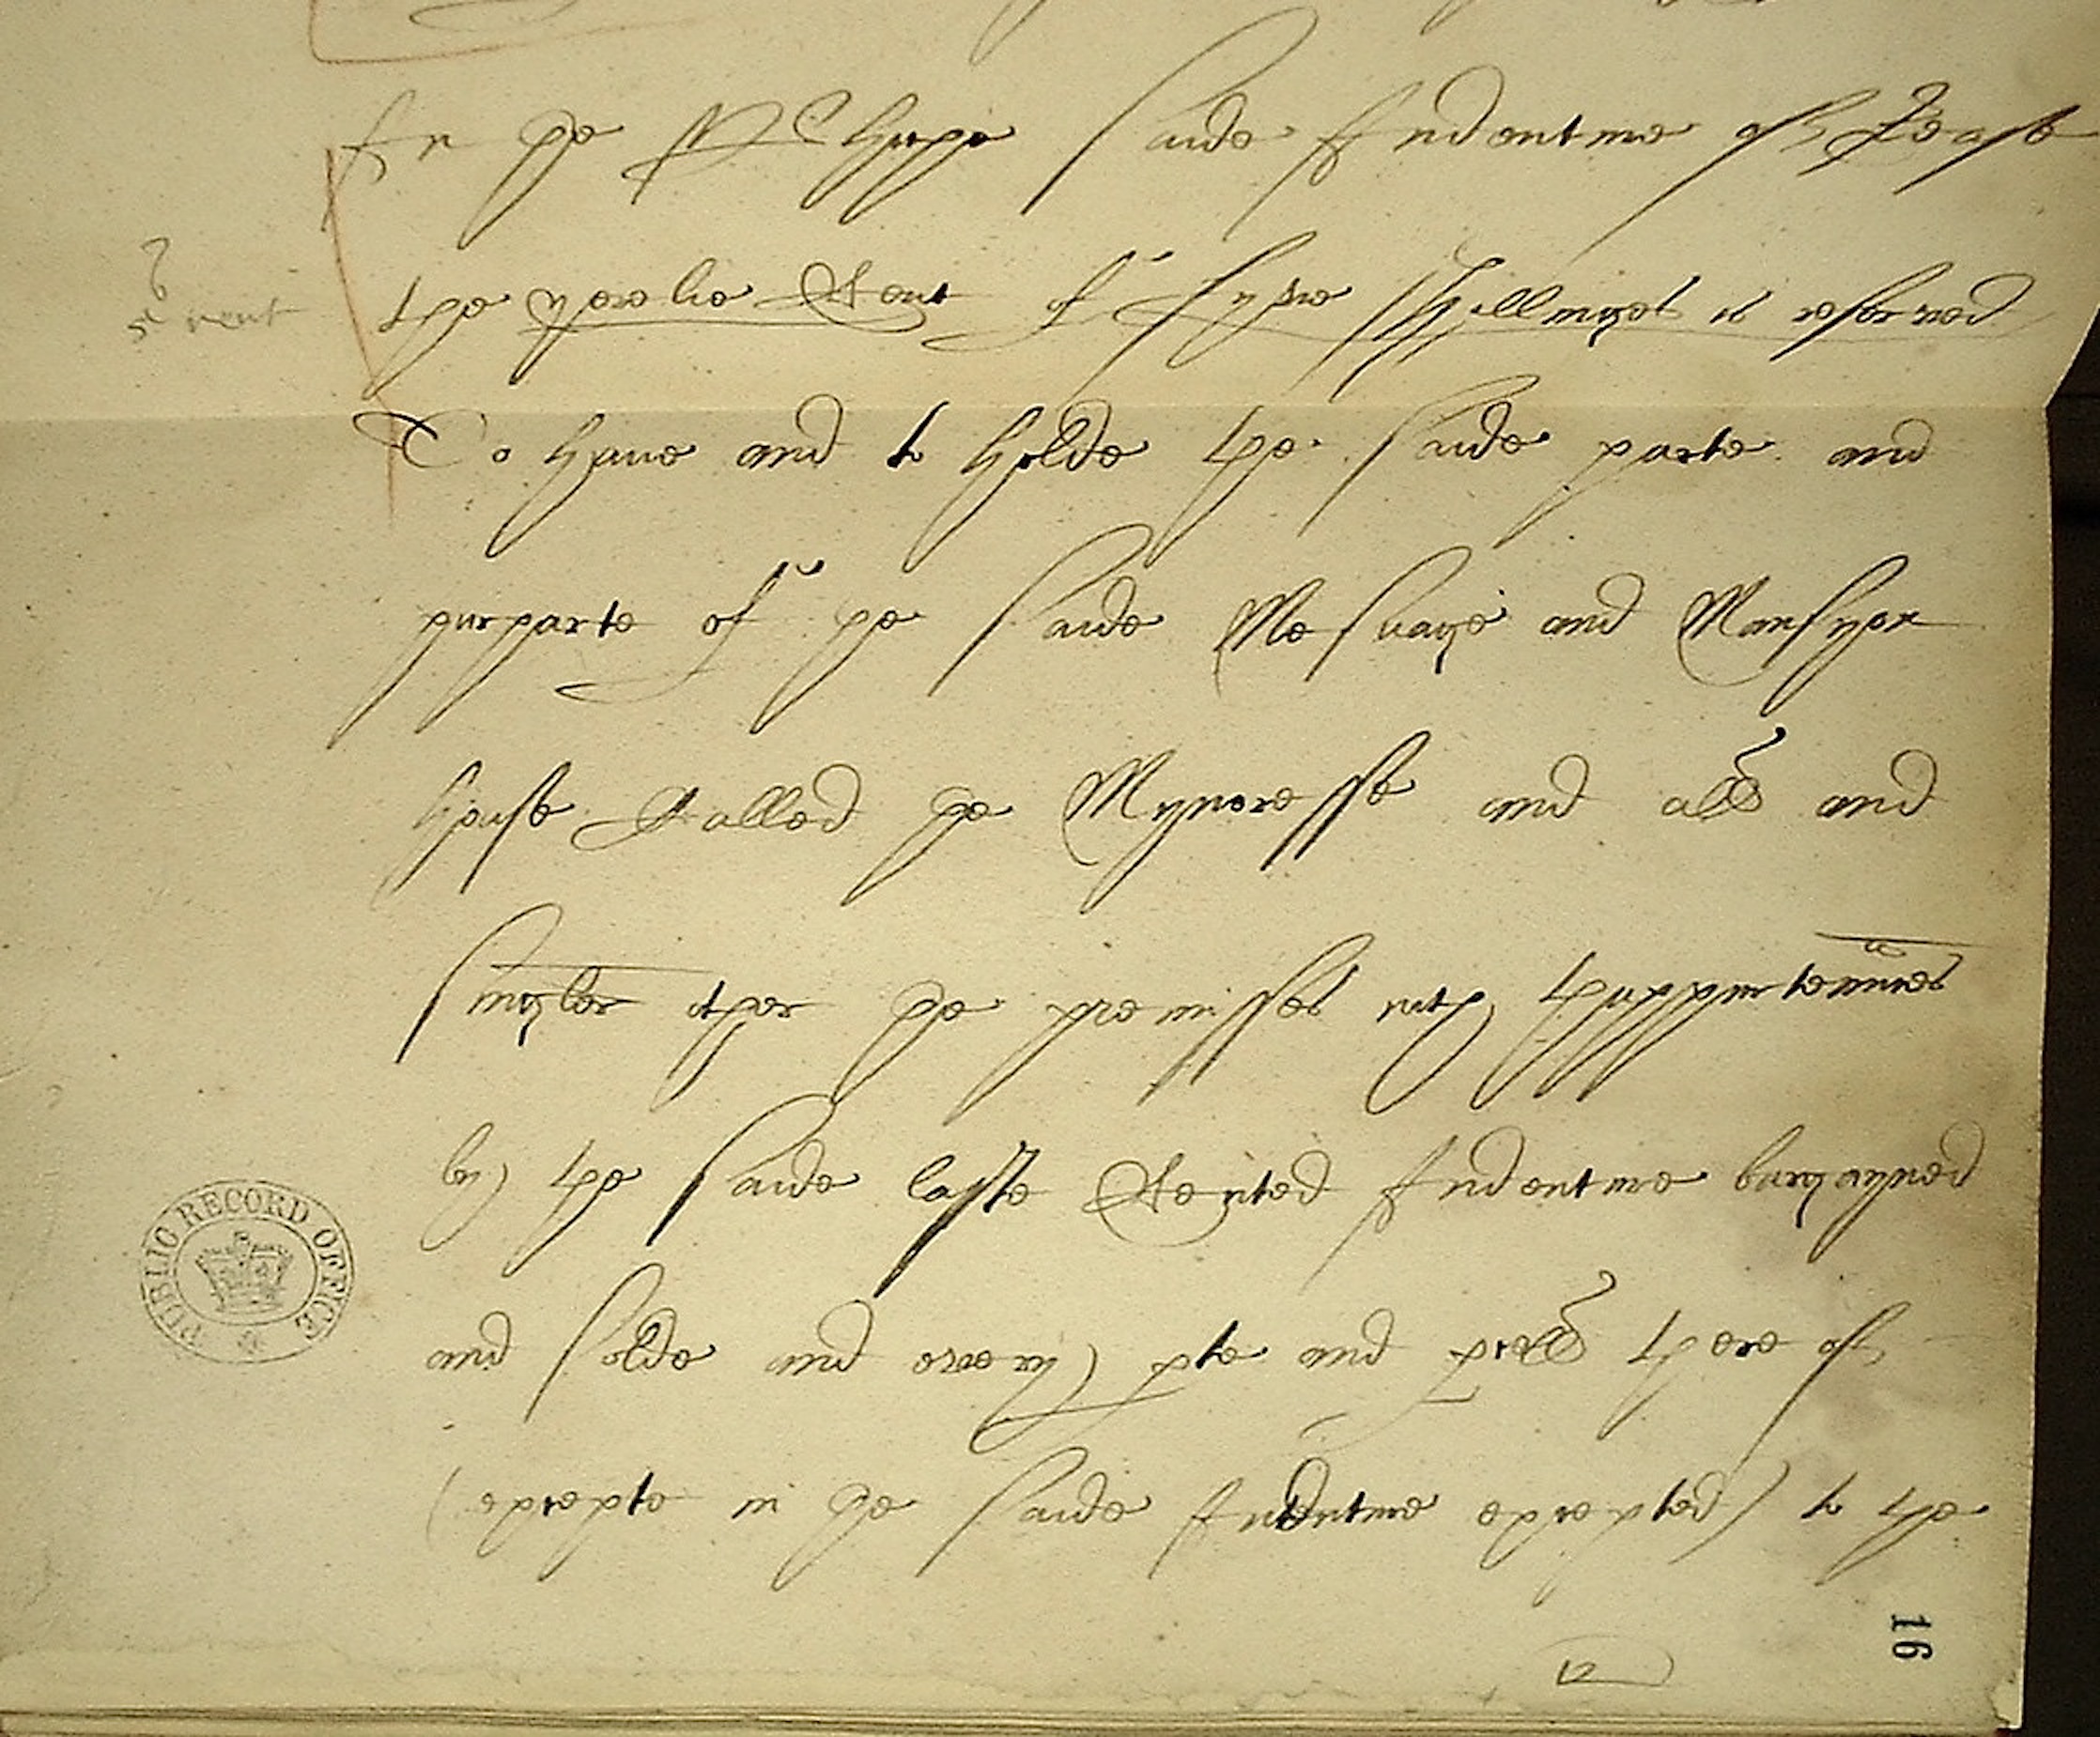 In the Whiche saide Indenture of Lease
? 5s rent
the yerelie Rent of fyve Shillinges is reserved
To have and to holde the saide parte and
purparte of the saide Mesuage and Mansyon
house Called the Mynoresse and all and
Singler other the premisses with thappurtennces
by the saide laste Recited Indenture bargayned
and solde and every pte and pcell thereof
(excepte in the saide Indenture excepted) to the
PUBLIC RECORD OFFICE
16
12